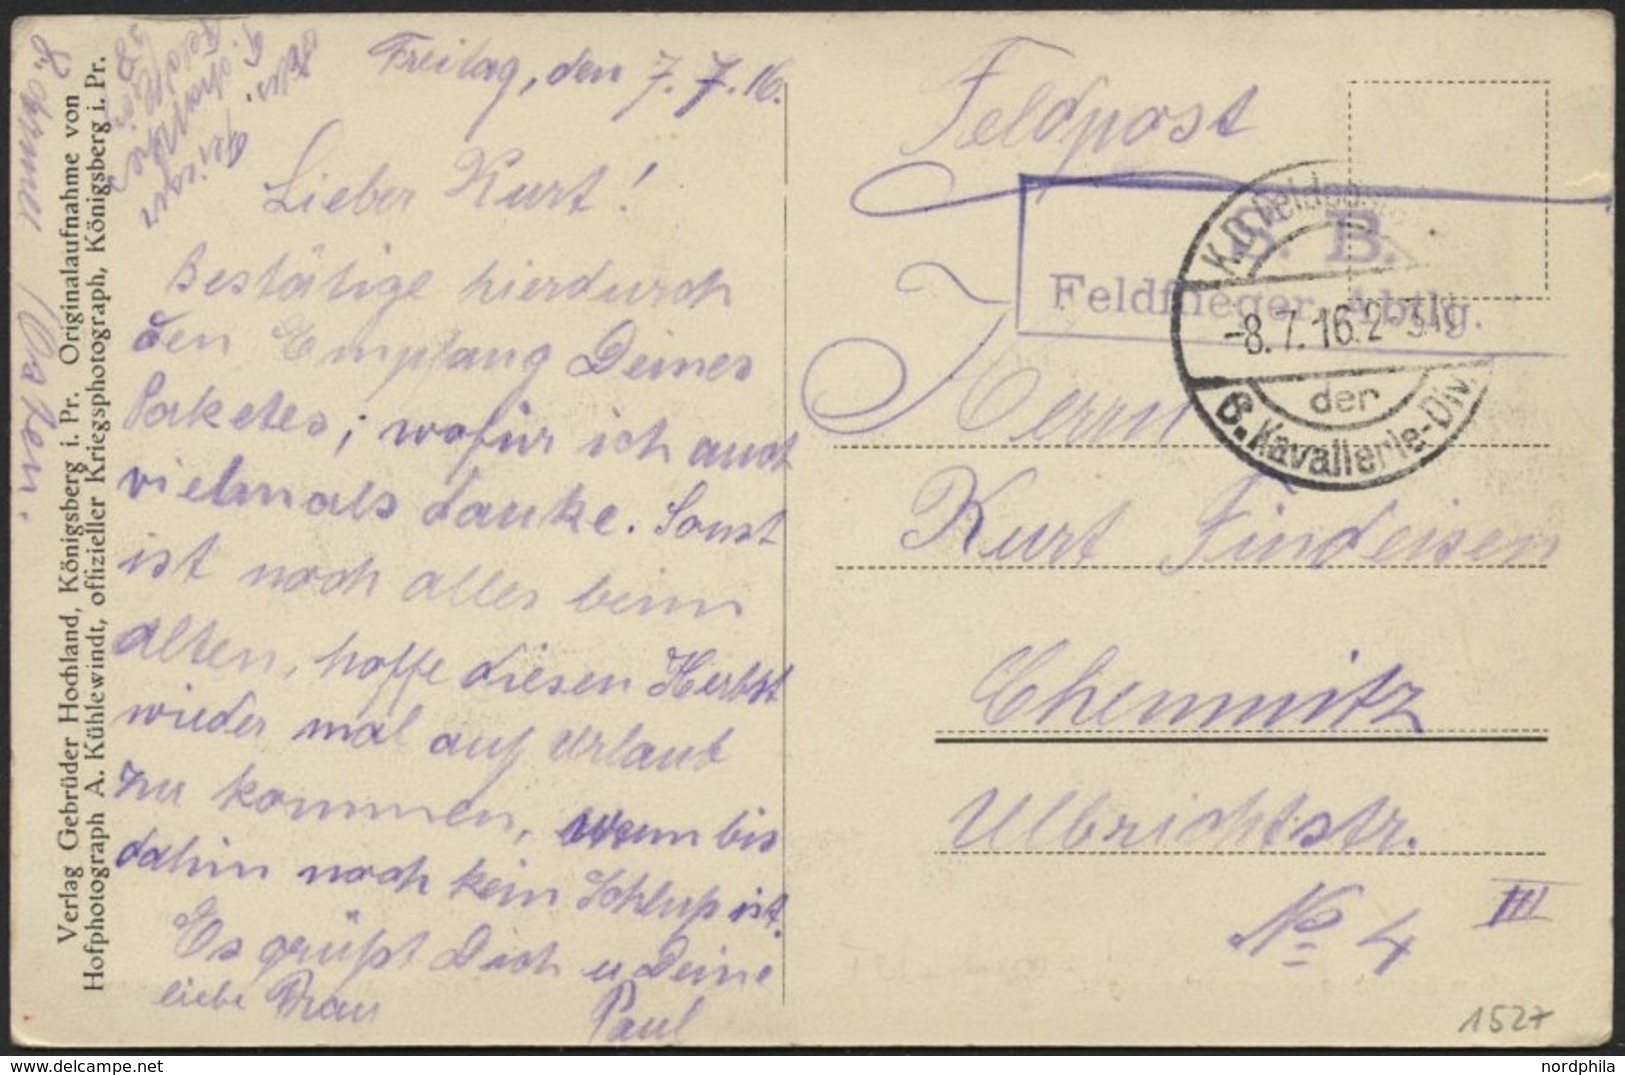 Freitag, den 7.7.16.
Lieber Kurt!
Bestätige hierdurch
den Empfang Deines
Paketes; wofür ich auch
vielmals danke. Sonst
ist noch alles beim
alten, hoffe diesen Herbst
wieder mal auf Urlaub
zu kommen, wenn bis
dahin noch kein Schluß ist.
Es grüßt Dich u Deine
liebe Frau Paul
Verlag Gebrüder Hochland, Königsberg i. Pr. Originalaufnahme von
Hofphotograph A. Kühlewindt, offizieller Kriegsphotograph, Königsberg i. Pr.
8. Armee Osten.
Feldpost
S. B.
Feldflieger-Abtlg.
K.D. Feldpost
-8.7.16. 2-3 N
der
6. Kavallerie-Div.
Herrn
Kurt Findeisen
Chemnitz
Ulbrichtstr.
No 4 III
1527
nordphila